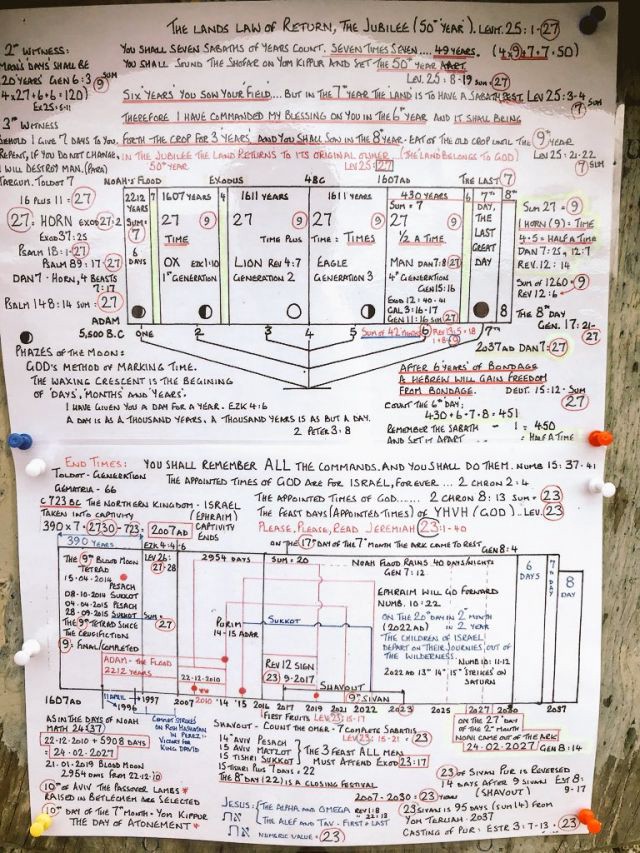 THE LANDS LAW OF RETURN, THE JUBILEE (50th YEAR). LEVIT. 25:1-27
2nd WITNESS:
MAN'S DAYS SHALL BE
120 YEARS GEN 6:3 SUM 9
YOU SHALL SEVEN SABATHS OF YEARS COUNT. SEVEN TIMES SEVEN.... 49 YEARS. (4×9+7+7=50)
YOU SHALL SOUND THE SHOFAR ON YOM KIPPUR AND SET THE 50th YEAR APART.
LEV. 25:8-19 SUM = 27
SIX 'YEARS' YOU SOW YOUR 'FIELD'.... BUT IN THE 7th YEAR THE LAND IS TO HAVE A SABATH REST. LEV 25:3-4
SUM 7
THEREFORE I HAVE COMMANDED MY BLESSING ON YOU IN THE 6th YEAR AND IT SHALL BRING
3rd WITNESS
BEHOLD I GIVE 7 DAYS TO YOU,
REPENT, IF YOU DO NOT CHANGE,
I WILL DESTROY MAN. (PARA)
TARGUM. TOLDOT 7
FORTH THE CROP FOR 3 YEARS AND YOU SHALL SOW IN THE 8th YEAR - EAT OF THE OLD CROP UNTIL THE 9th YEAR
IN THE JUBILEE THE LAND RETURNS TO ITS ORIGINAL OWNER (THE LAND BELONGS TO GOD) LEV 25:21-22
50th YEAR LEV 25:27 7 SUM
NOAH'S FLOOD EXODUS 4BC 1607AD THE LAST 7
16 PLUS 11 = 27
27 = HORN EXOD 27:2
EXOD 37:25
PSALM 18:1-27
PSALM 89:17-27
DAN 7 - HORN, 4 BEASTS
7:17
PSALM 148:14 SUM = 27
2212 YEARS
SUM = 7
6 DAYS
1607 YEARS
27 9
TIME
OX EZK 1:10
1st GENERATION
1611 YEARS
27 9
TIME PLUS
LION REV 4:7
GENERATION 2
1611 YEARS
27 9
TIME = TIMES
EAGLE
GENERATION 3
430 YEARS
SUM = 7
27 9
1/2 A TIME
MAN DAN 7:8 27
4th GENERATION
GEN 15:16
EXOD 12:40-41
GAL 3:16-17
GEN 11:16 SUM 27
7th DAY, THE LAST GREAT DAY
8th
8
SUM 27 = 9
1 HORN (9) = TIME
4.5 = HALF A TIME
DAN 7:25, 12:7
REV. 12:14
SUM OF 1260 = 9
REV 12:6
THE 8th DAY
GEN. 17:21-27
ADAM
5,500 B.C ONE 2 3 4 5 SUM OF 42 MONTHS 6 REV 13:5 = 18 7th
1+8 = 9
2037AD DAN 7: 27
PHAZES OF THE MOON:
GOD'S METHOD OF MARKING TIME.
THE WAXING CRESCENT IS THE BEGINING
OF 'DAYS', MONTHS AND YEARS.
I HAVE GIVEN YOU A DAY FOR A YEAR. EZK 4:6
A DAY IS AS A THOUSAND YEARS, A THOUSAND YEARS IS AS BUT A DAY.
2 PETER 3:8
AFTER 6 YEARS OF BONDAGE
A HEBREW WILL GAIN FREEDOM
FROM BONDAGE. DEUT. 15:12 - SUM 27
COUNT THE 6th DAY:
430 + 6 + 7 + 8 = 451
REMEMBER THE SABATH - 1 = 450
AND SET IT APART = HALF A TIME
END TIMES: YOU SHALL REMEMBER ALL THE COMMANDS. AND YOU SHALL DO THEM. NUMB 15:37-41
TOLDOT - GENERATION THE APPOINTED TIMES OF GOD ARE FOR ISRAEL, FOREVER... 2 CHRON 2:4
GEMATRIA - 66
C 723 BC THE NORTHERN KINGDOM - ISRAEL THE APPOINTED TIMES OF GOD...... 2 CHRON 8:13 SUM = 23
TAKEN INTO CAPTIVITY (EPHRAIM) THE FEAST DAYS (APPOINTED TIMES) OF YHVH (GOD)..LEV. 23
390 × 7 = 2730 - 723 = 2007AD CAPTIVITY ENDS PLEASE, PLEASE, READ JEREMIAH 23:1-40
390 YEARS EZK 4:4-6 ON THE 17th DAY OF THE 7th MONTH THE ARK CAME TO REST. GEN 8:4
THE 9th BLOOD MOON
TETRAD
15-04-2014 PESACH
08-10-2014 SUKKOT
04-04-2015 PESACH
28-09-2015 SUKKOT SUM =
THE 9th TETRAD SINCE 27
THE CRUCIFICTION
9 = FINAL/COMPLETED
LEV 26: 27-28
2954 DAYS SUM = 20
NOAH FLOOD RAINS 40 DAYS/NIGHTS
GEN 7:12
EPHRAIM WILL GO FORWARD
NUMB. 10:22
ON THE 20th DAY IN 2nd MONTH
(2022AD) IN 2nd YEAR
THE CHILDREN OF ISRAEL
DEPART ON THEIR JOURNIES, OUT OF
THE WILDERNESS.
NUMB 10:11-12
6 DAYS
7th DAY
8 DAY
PURIM
14-15 ADAR
SUKKOT
ADAM - THE FLOOD
2212 YEARS
22-12-2010
REV 12 SIGN
23-9-2017
SHAVUOT
9th SIVAN
2022AD 13th 14th 15th STRIKES ON
SATURN
1607AD 11 APRIL 1996 1997 2007 2010 '14 '15 2016 2017 2019 2021 2022 2023 2025 2027 2030 2037
AS IN THE DAYS OF NOAH
MATH 24:37
22-12-2010 + 5908 DAYS
= 24-02-2027
21-01-2019 BLOOD MOON
2954 DAYS FROM 22-12-10
COMET STRIKES
ON ROSH HASHATAN
IN PEREZ =
VICTORY FOR
KING DAVID
FIRST FRUITS LEV 23:15-17
SHAVUOT - COUNT THE OMER - 7 COMPLETE SABATHS
14th AVIV PESACH LEV 23:15-21 = 23
15 AVIV MATZOT THE 3 FEAST ALL MEN
15 TISHRI SUKKOT MUST ATTEND EXOD 23:17
15 TISHRI PLUS 7 DAYS = 22
THE 8th DAY (22) IS A CLOSING FESTIVAL
ON THE 27th DAY
OF THE 2nd MONTH
NOAH CAME OUT OF THE ARK
24-02-2027 GEN 8:14
10th OF AVIV THE PASSOVER LAMBS*
RAISED IN BETLECHEM ARE SELECTED
10th DAY OF THE 7th MONTH - YOM KIPPUR
THE DAY OF ATONEMENT*
2007-2030 = 23 YEARS
JESUS = THE ALPHA AND OMEGA REV 1:8
THE ALEF AND TAV - FIRST + LAST " 22:13
NUMERIC VALUE = 23
23 OF SIVAN PUR IS REVERSED
14 DAYS AFTER 9 SIVAN EST 8:
(SHAVUOT) 9-17
23 SIVAN IS 95 DAYS (SUM 14) FROM
YOM TERUAH - 2037
CASTING OF PUR = ESTR 3:7-13 = 23